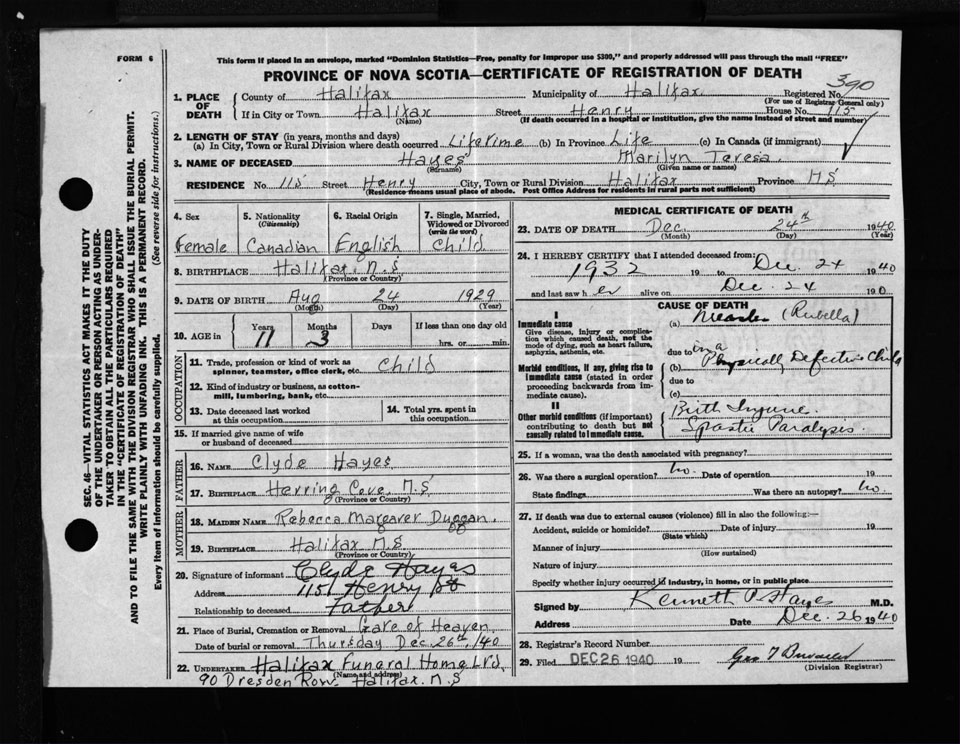 FORM 6
This form if placed in an envelope, marked "Dominion Statistics—Free, penalty for improper use $300," and properly addressed will pass through the mail "FREE"
PROVINCE OF NOVA SCOTIA—CERTIFICATE OF REGISTRATION OF DEATH
390
1. PLACE OF DEATH County of Halifax Municipality of Halifax. Registered No.
(For use of Registrar General only)
If in City or Town Halifax Street Henry House No. 115
(Name) (If death occurred in a hospital or institution, give the name instead of street and number)
2. LENGTH OF STAY (in years, months and days)
(a) In City, Town or Rural Division where death occurred Lifetime (b) In Province Life (c) In Canada (if immigrant)
3. NAME OF DECEASED Hayes Marilyn Teresa.
(Surname) (Given name or names)
RESIDENCE No. 115 Street Henry City, Town or Rural Division Halifax Province N.S
(Residence means usual place of abode. Post Office Address for residents in rural parts not sufficient)
SEC. 46—VITAL STATISTICS ACT MAKES IT THE DUTY
OF THE UNDERTAKER OR PERSON ACTING AS UNDER-
TAKER TO OBTAIN ALL THE PARTICULARS REQUIRED
IN THE "CERTIFICATE OF REGISTRATION OF DEATH"
AND TO FILE THE SAME WITH THE DIVISION REGISTRAR WHO SHALL ISSUE THE BURIAL PERMIT.
WRITE PLAINLY WITH UNFADING INK. THIS IS A PERMANENT RECORD.
Every item of information should be carefully supplied. (See reverse side for instructions.)
4. Sex 5. Nationality (Citizenship) 6. Racial Origin 7. Single, Married, Widowed or Divorced (write the word)
Female Canadian English Child
8. BIRTHPLACE Halifax. N.S
(Province or Country)
9. DATE OF BIRTH Aug 24 1929
(Month) (Day) (Year)
10. AGE in Years Months Days If less than one day old
11 3 hrs. or min.
OCCUPATION
11. Trade, profession or kind of work as
spinner, teamster, office clerk, etc. Child
12. Kind of industry or business, as cotton-
mill, lumbering, bank, etc.
13. Date deceased last worked at this occupation 14. Total yrs. spent in this occupation
15. If married give name of wife
or husband of deceased
FATHER
16. NAME Clyde Hayes
17. BIRTHPLACE Herring Cove, N.S
(Province or Country)
MOTHER
18. MAIDEN NAME Rebecca Margaret Duggan.
19. BIRTHPLACE Halifax N.S
(Province or Country)
20. Signature of informant Clyde Hayes
Address 115 Henry St
Relationship to deceased Father
21. Place of Burial, Cremation or Removal Gate of Heaven
Date of burial or removal Thursday Dec. 26th, /40
22. UNDERTAKER Halifax Funeral Home Ltd,
(Name and address)
90 Dresden Row. Halifax. N.S
MEDICAL CERTIFICATE OF DEATH
23. DATE OF DEATH Dec. 24th 1940
(Month) (Day) (Year)
24. I HEREBY CERTIFY that I attended deceased from:
1932 19 to Dec 24 1940
and last saw her alive on Dec. 24 190
CAUSE OF DEATH
I
Immediate cause
Give disease, injury or complica-
tion which caused death, not the
mode of dying, such as heart failure,
asphyxia, asthenia, etc.
(a) Measles (Rubella)
due to in a
Morbid conditions, if any, giving rise to
immediate cause (stated in order
proceeding backwards from im-
mediate cause).
(b) Physically Defective Child
due to
(c)
II
Other morbid conditions (if important)
contributing to death but not
causally related to immediate cause.
Birth Injurie.
Spastic Paralysis.
25. If a woman, was the death associated with pregnancy?
26. Was there a surgical operation? No. Date of operation 19
State findings Was there an autopsy? No
27. If death was due to external causes (violence) fill in also the following:—
Accident, suicide or homicide? Date of injury 19
(State which)
Manner of injury
(How sustained)
Nature of injury
Specify whether injury occurred in industry, in home, or in public place
Signed by Kenneth P. Hayes M.D.
Address Date Dec. 26 1940
28. Registrar's Record Number
29. Filed DEC 26 1940 19 Geo
(Division Registrar)